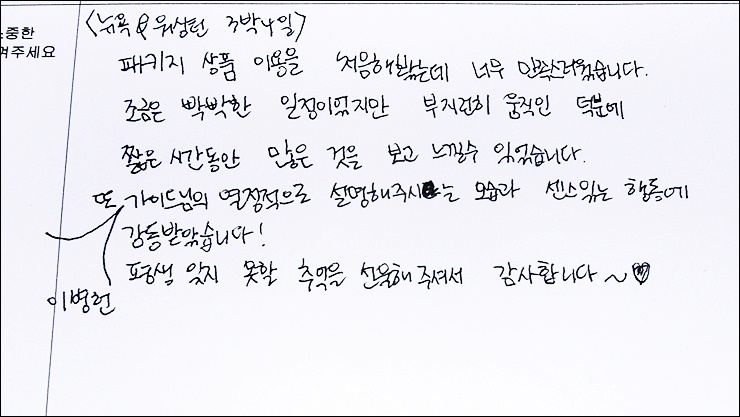 소중한
겨주세요
<뉴욕 & 워싱턴 3박4일>
패키지 상품 이용을 처음해봤는데 너무 만족스러웠습니다.
조금은 빡빡한 일정이였지만 부지런히 움직인 덕분에
짧은 시간동안 많은 것을 보고 느낄수 있었습니다.
또 가이드님의 열정적으로 설명해주시는 모습과 센스있는 행동에
감동받았습니다!
평생 잊지 못할 추억을 선물해주셔서 감사합니다~♡
이병헌